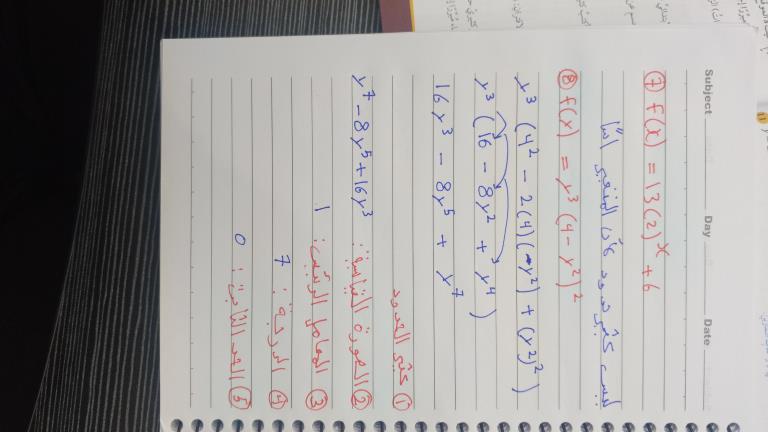 Subject Day Date
⑦ f(x) = 13(2)^x + 6
ليست كثير حدود لأن المتغير أسًا
⑧ f(y) = y³(4 - y²)²
y³ (4² - 2(4)(y²) + (y²)²)
y³ (16 - 8y² + y⁴)
16y³ - 8y⁵ + y⁷
① كثير الحدود
② الصورة القياسية: y⁷ - 8y⁵ + 16y³
③ المعامل الرئيس: 1
④ الدرجة: 7
⑤ الحد الثابت: 0